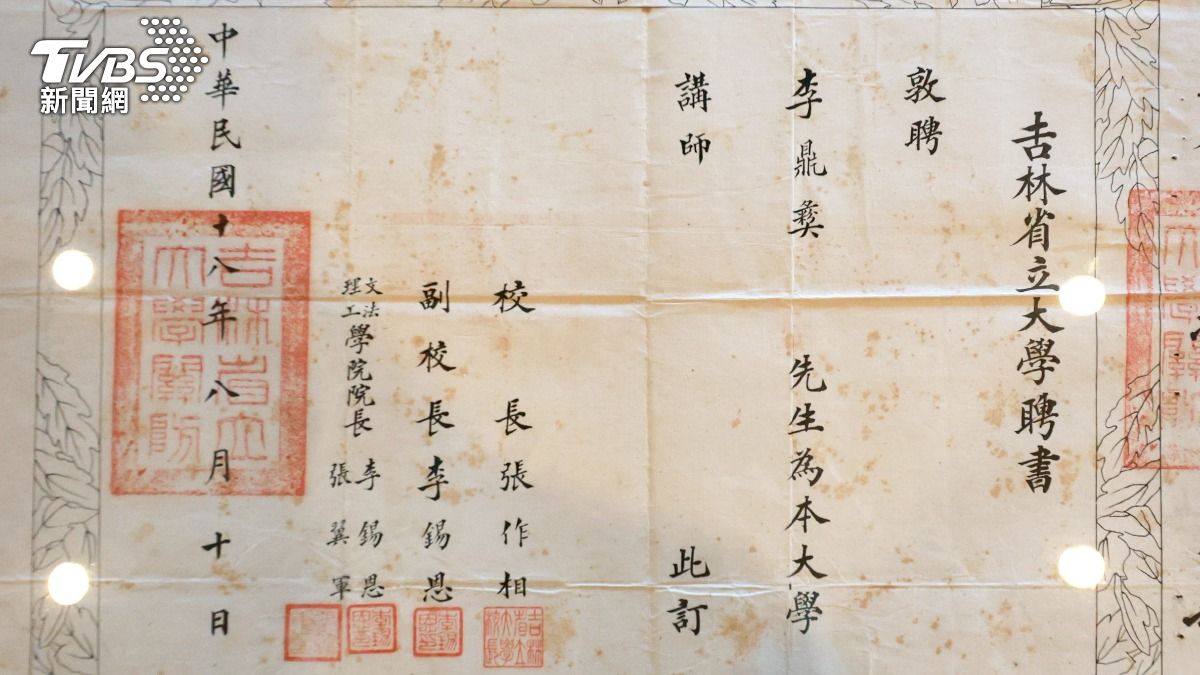 TVBS
新聞網
吉林省立大學聘書
敦聘
李鼎彝 先生為本大學
講師 此訂
校長張作相
副校長李錫恩
文法
理工
學院院長
李錫恩
張翼軍
中華民國十八年八月十日
吉林省立
大學關防
吉林
省立
大學
校長
李錫
恩印